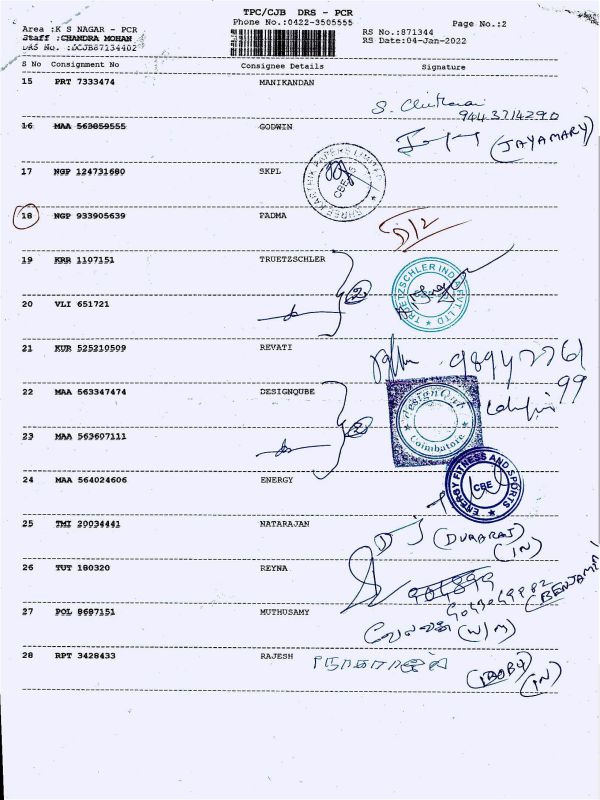 TPC/CJB DRS - PCR
Phone No.:0422-3505555
Page No.:2
Area :K S NAGAR - PCR
Staff :CHANDRA MOHAN
DRS No. :DCJB87134402
RS No.:871344
RS Date:04-Jan-2022
S No Consignment No Consignee Details Signature
15 PRT 7333474 MANIKANDAN
9443714290
16 MAA 563859555 GODWIN
(JAYAMARY)
17 NGP 124731680 SKPL
CBE
18 NGP 933905639 PADMA
19 KRR 1107151 TRUETZSCHLER
2
TRUETZSCHLER INDIA PVT LTD
20 VLI 651721
21 KUR 525210509 REVATI
22 MAA 563347474 DESIGNQUBE
99
2
Coimbatore
23 MAA 563607111
24 MAA 564024606 ENERGY
ENERGY FITNESS AND SPORTS
CBE
25 TMI 20034441 NATARAJAN
(DURARAJ)
(IN)
26 TUT 180320 REYNA
27 POL 8687151 MUTHUSAMY
(W/M)
28 RPT 3428433 RAJESH
(BOBY)
(IN)